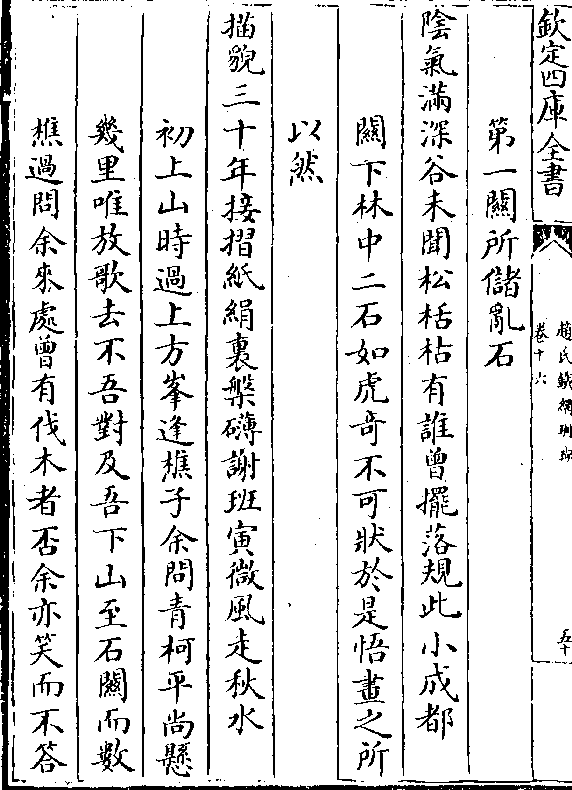 欽定四庫全書
趙氏鐵網珊瑚
卷十六
五十
第一關所儲亂石
陰氣滿深谷未聞松栝枯有誰曾擺落規此小成都
關下林中二石如虎奇不可狀於是悟畫之所
以然
描貌三十年接摺紙絹裏槃礴謝班寅微風走秋水
初上山時過上方峯逢樵子余問青柯平尚懸
幾里唯放歌去不吾對及吾下山至石關而數
樵過問余來處曾有伐木者否余亦笑而不答